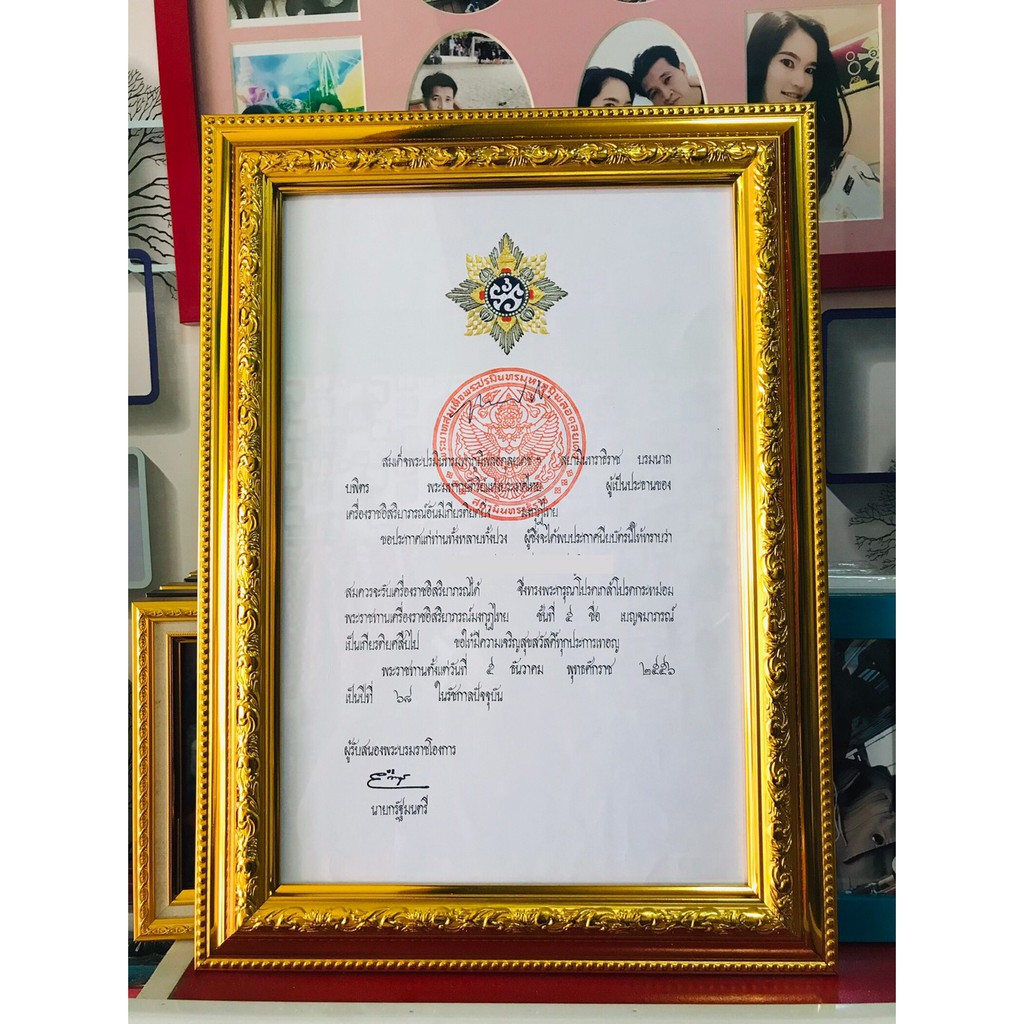 สมเด็จพระปรมินทรมหาภูมิพลอดุลยเดช ฯ สยามินทราธิราช บรมนาถ
บพิตร พระมหากษัตริย์แห่งประเทศไทย ผู้เป็นประธานของ
เครื่องราชอิสริยาภรณ์อันมีเกียรติยศยิ่ง มงกุฎไทย
ขอประกาศแก่ท่านทั้งหลายทั้งปวง ผู้ซึ่งจะได้พบประกาศนียบัตรนี้ให้ทราบว่า
สมควรจะรับเครื่องราชอิสริยาภรณ์ได้ จึงทรงพระกรุณาโปรดเกล้าโปรดกระหม่อม
พระราชทานเครื่องราชอิสริยาภรณ์มงกุฎไทย ชั้นที่ ๕ ชื่อ เบญจมาภรณ์
เป็นเกียรติยศสืบไป ขอให้มีความเจริญสุขสวัสดิ์ทุกประการเทอญ
พระราชทานตั้งแต่วันที่ ๕ ธันวาคม พุทธศักราช ๒๕๕๖
เป็นปีที่ ๖๘ ในรัชกาลปัจจุบัน
ผู้รับสนองพระบรมราชโองการ
นายกรัฐมนตรี